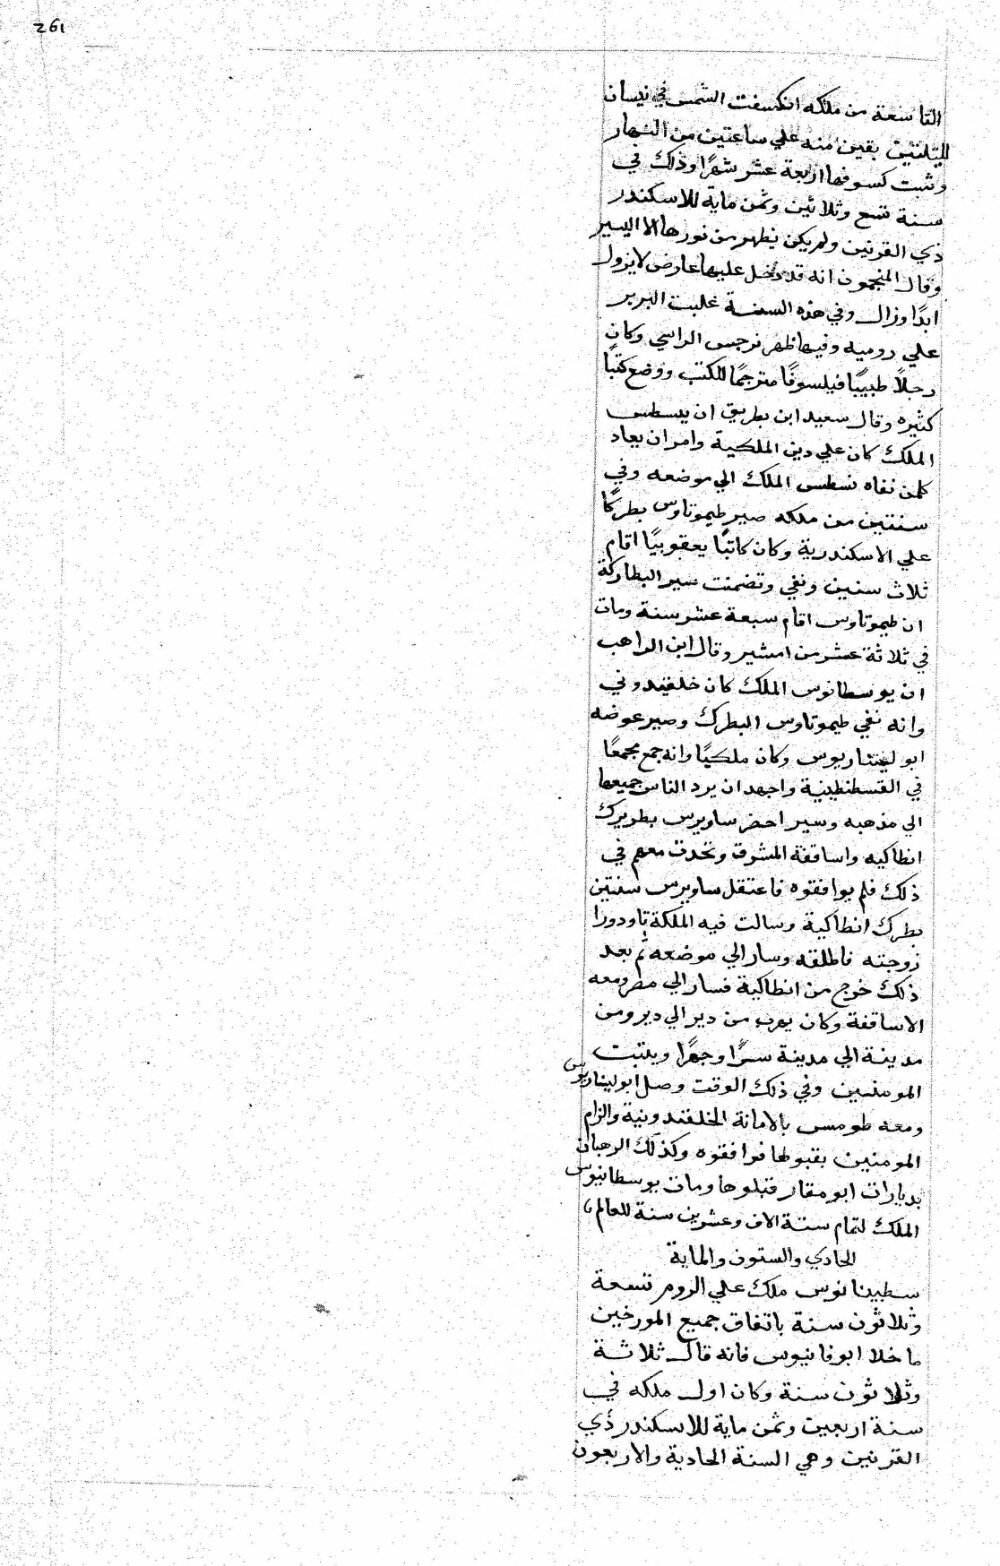 261
التاسعة من ملكه انكسفت الشمس في نيسان
لليلتين بقين منه علي ساعتين من النهار
وثبت كسوفها اربعة عشر شهرًا وذلك في
سنة تسع وثلاثين وثمن ماية للاسكندر
ذي القرنين ولم يكن يظهر من نورها الا اليسير
وقال المنجمون انه قد دخل عليها عارض لا يزول
ابدًا وزال وفي هذه السنة غلبت البربر
علي روميه وفيها ظهر نرجس الراسي وكان
رجلًا طبيبًا فيلسوفًا مترجمًا للكتب ووضع كتبًا
كثيره وقال سعيد ابن بطريق ان يسطس
الملك كان علي دين الملكية وامر ان يعاد
كلمن نفاه نسطس الملك الي موضعه وفي
سنتين من ملكه صير طيموتاوس بطركًا
علي الاسكندرية وكان كاتبًا يعقوبيًا اقام
ثلاث سنين ونفي وتضمنت سير البطاركة
ان طيموتاوس اقام سبعة عشر سنة ومات
في ثلاثة عشر من امشير وقال ابن الراهب
ان يوسطانوس الملك كان خلقيدوني
وانه نفي طيموتاوس البطرك وصير عوضه
ابو ليناريوس وكان ملكيًا وانه جمع مجمعًا
في القسطنطينية واجهد ان يرد الناس جميعها
الي مذهبه وسير احضر ساويرس بطريرك
انطاكيه واساقفة المشرق وتحدث معهم في
ذلك فلم يوافقوه فاعتقل ساويرس سنتين
بطرك انطاكية وسالت فيه الملكة تاودورا
زوجته فاطلقه وسار الي موضعه ثم بعد
ذلك خرج من انطاكية فسار الي مصر ومعه
الاساقفة وكان يهرب من دير الي دير ومن
مدينة الي مدينة سرًا وجهرًا ويثبت
المومنين وفي ذلك الوقت وصل ابوليناريوس
ومعه طومس بالامانة الخلقدونية والزام
المومنين بقبولها فوافقوه وكذلك الرهبان
بديارات ابو مقار قبلوها ومات يوسطانيوس
الملك لتمام ستة الاف وعشرين سنة للعالم
الحادي والستون والماية
سطينانوس ملك علي الروم تسعة
وثلاثون سنة باتفاق جميع المورخين
ما خلا ابوفانيوس فانه قال ثلاثة
وثلاثون سنة وكان اول ملكه في
سنة اربعين وثمن ماية للاسكندر ذي
القرنين وهي السنة الحادية والاربعون